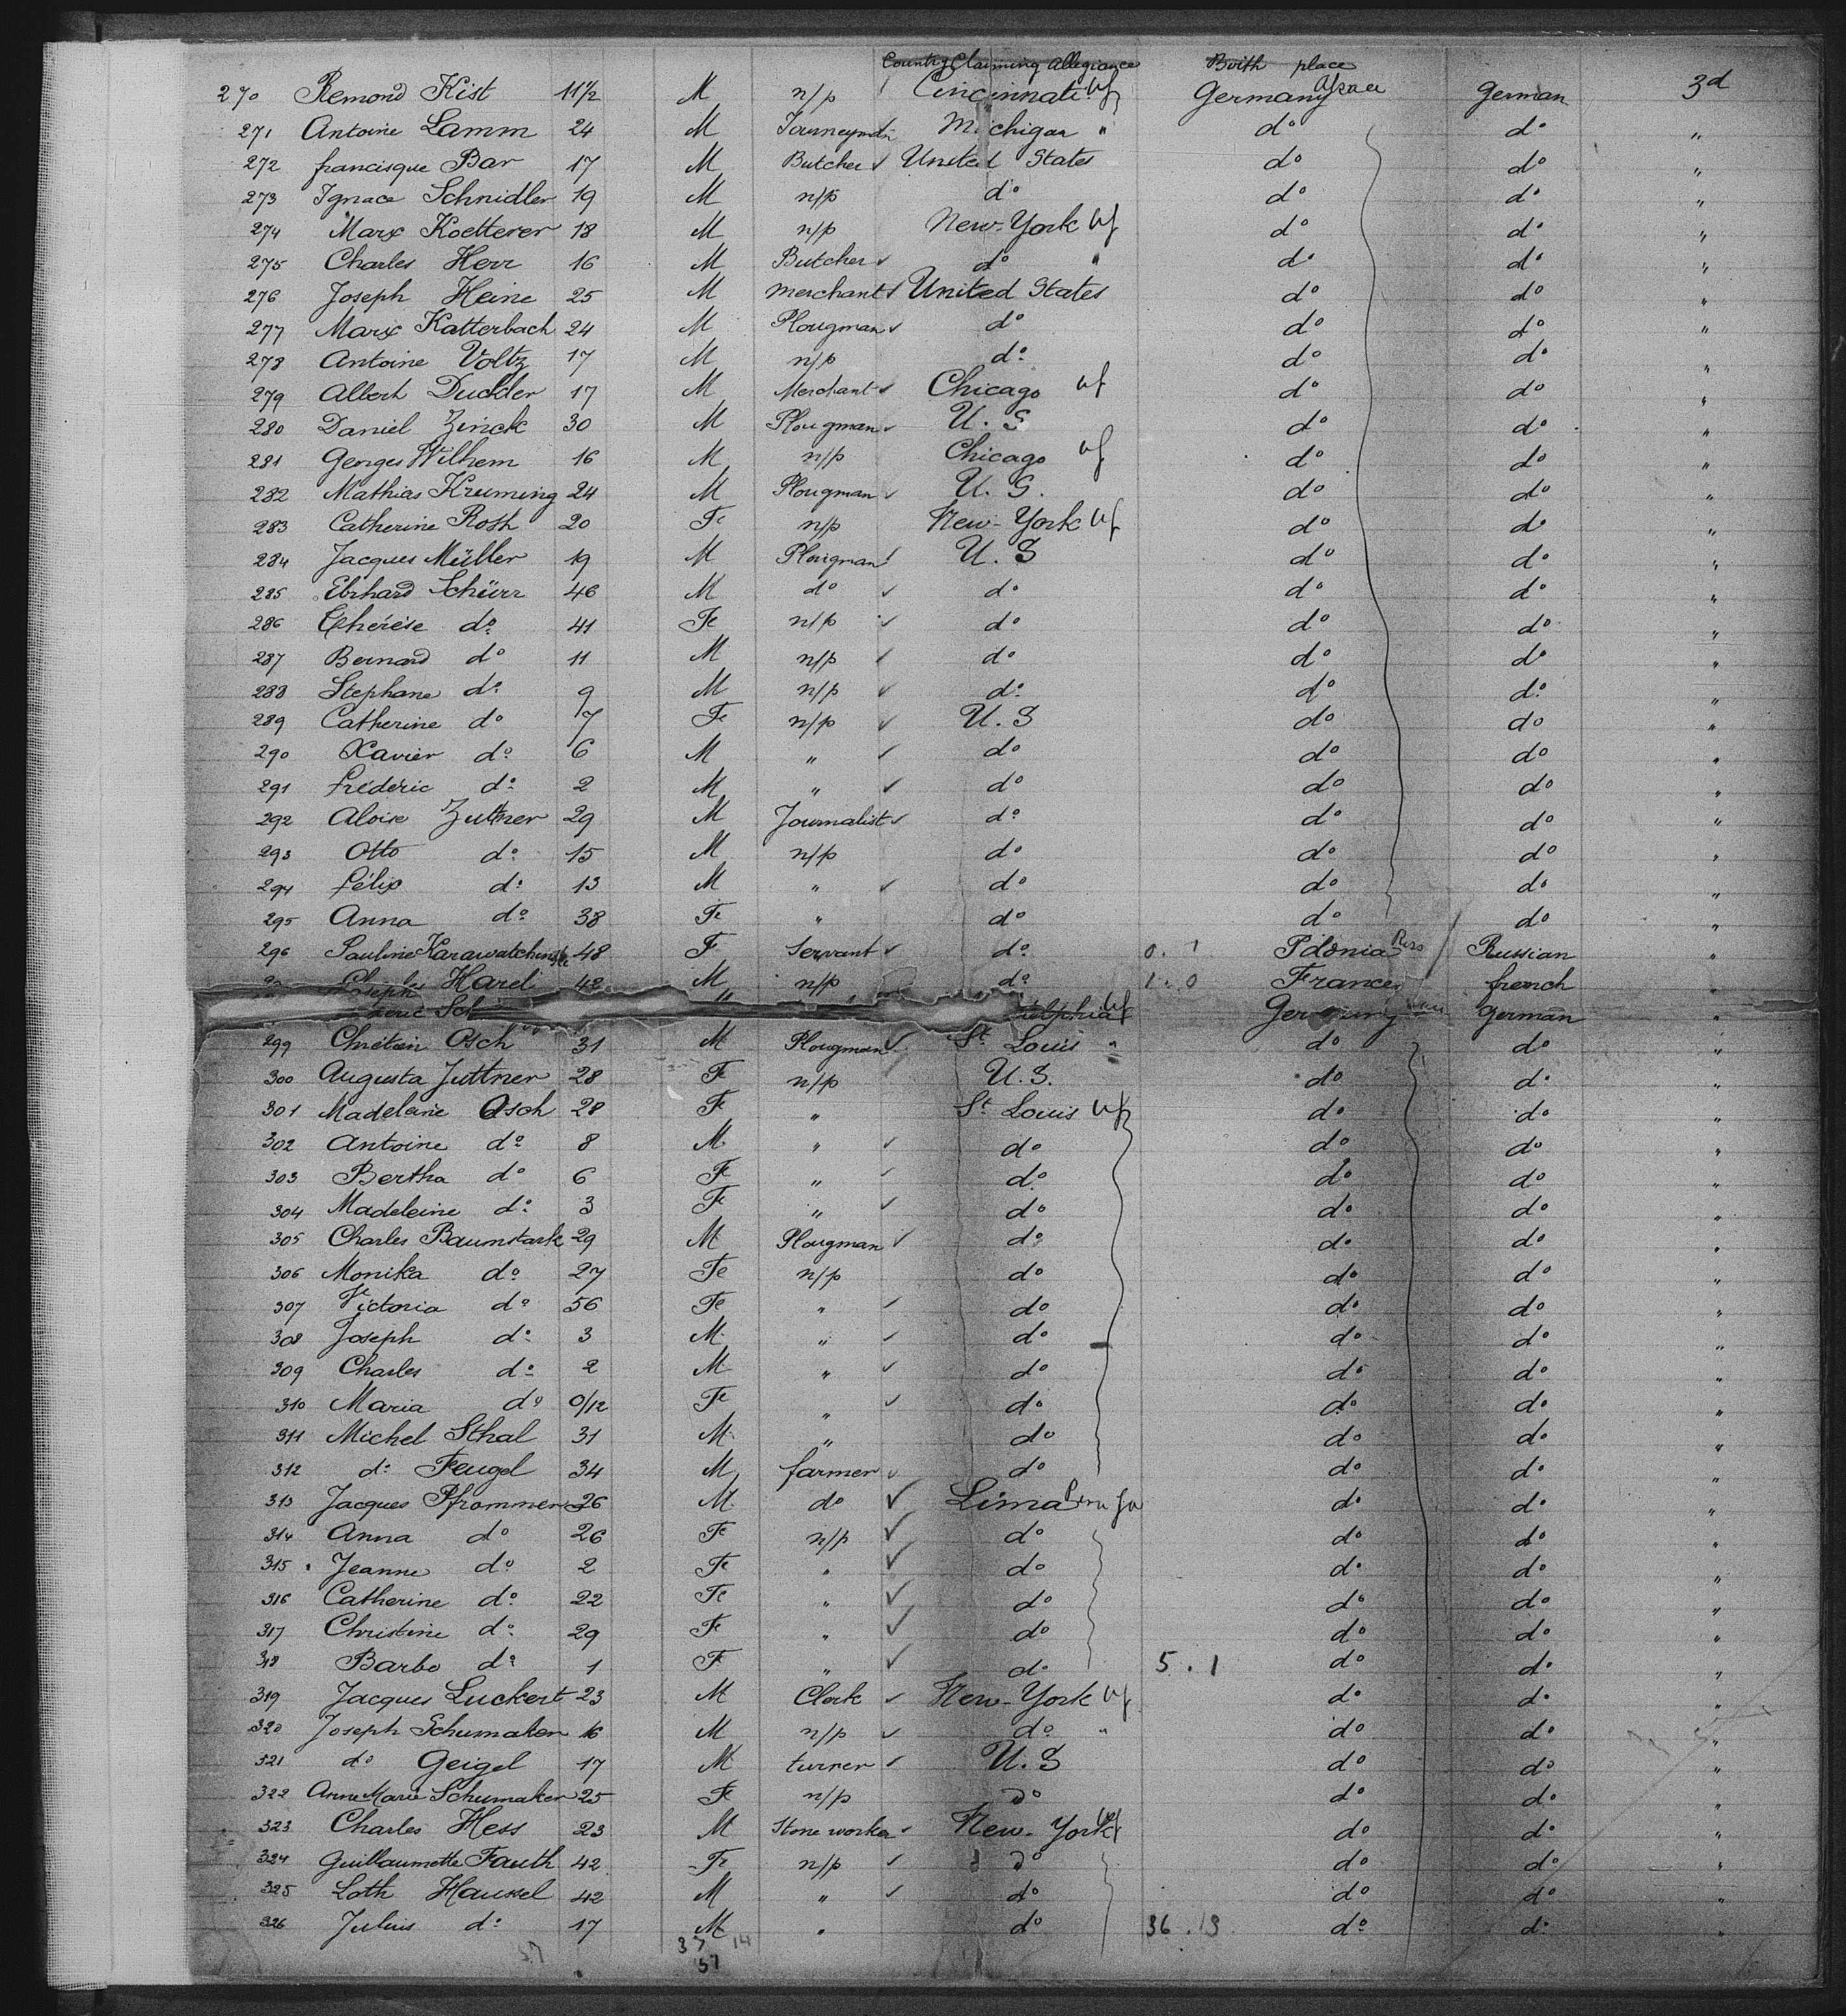 Country Claiming Allegiance Birth place
270 Remond Kist 11½ M n/p Cincinnati Germany Alsace German 3d
271 Antoine Lamm 24 M Michigan " do do "
272 francisque Bar 17 M Butcher United States do do "
273 Ignace Schnidler 19 M n/p do do do "
274 Marx Koetterer 18 M n/p New-York do do "
275 Charles Herr 16 M Butcher do " do do "
276 Joseph Heine 25 M merchant United States do do "
277 Marx Katterbach 24 M Plougman do do do "
278 Antoine Voltz 17 M n/p do do do "
279 Albert Duckler 17 M Merchant Chicago do do "
280 Daniel Zinck 30 M Plougman U.S do do "
281 Georges Wilhem 16 M n/p Chicago do do "
282 Mathias Kruming 24 M Plougman U.S. do do "
283 Catherine Rosh 20 Fe n/p New-York do do "
284 Jacques Müller 19 M Plougman U.S do do "
285 Ebrhard Schürr 46 M do do do do "
286 Thérèse do 41 Fe n/p do do do "
287 Bernard do 11 M n/p do do do "
288 Stephane do 9 M n/p do do do "
289 Catherine do 7 Fe n/p U.S do do "
290 Xavier do 6 M " do do do "
291 frédéric do 2 M " do do do "
292 Aloise Zuttner 29 M Journalist do do do "
293 Otto do 15 M n/p do do do "
294 félix do 13 M " do do do "
295 Anna do 38 Fe " do do do "
296 Pauline 48 F Servant do 0. 1 Polonia Russ Russian "
Harel 42 M n/p do 1. 0 France french "
Sch elphia Germany German "
299 Chrétien Osch 31 M Plougman St Louis " do do "
300 Augusta Juttner 28 F n/p U.S. do do "
301 Madeleine Osch 28 F " St Louis do do "
302 Antoine do 8 M " do do do "
303 Bertha do 6 Fe " do do do "
304 Madeleine do 3 Fe " do do do "
305 Charles Baumstark 29 M Plougman do do do "
306 Monika do 27 Fe n/p do do do "
307 Victoria do 56 Fe " do do do "
308 Joseph do 3 M " do do do "
309 Charles do 2 M " do do do "
310 Maria do 0/12 Fe " do do do "
311 Michel Sthal 31 M " do do do "
312 do Feugel 34 M farmer do do do "
313 Jacques Pfrommer 26 M do Lima Peru do do "
314 Anna do 26 Fe n/p do do do "
315 Jeanne do 2 Fe " do do do "
316 Catherine do 22 Fe " do do do "
317 Christine do 29 Fe " do do do "
318 Barbe do 1 F " do 5 . 1 do do "
319 Jacques Luckert 23 M Clerk New-York do do "
320 Joseph Schumaker 16 M n/p do " do do "
321 do Geigel 17 M turner U.S do do "
322 Anne Marie Schumaker 25 Fe n/p do do do "
323 Charles Hess 23 M Stone worker New-York do do "
324 Guillaumette Fauth 42 Fe n/p do do do "
325 Loth Haussel 42 M " do do do "
326 Julius do 17 M " do 36 . 13 do do "
57 37 14
51